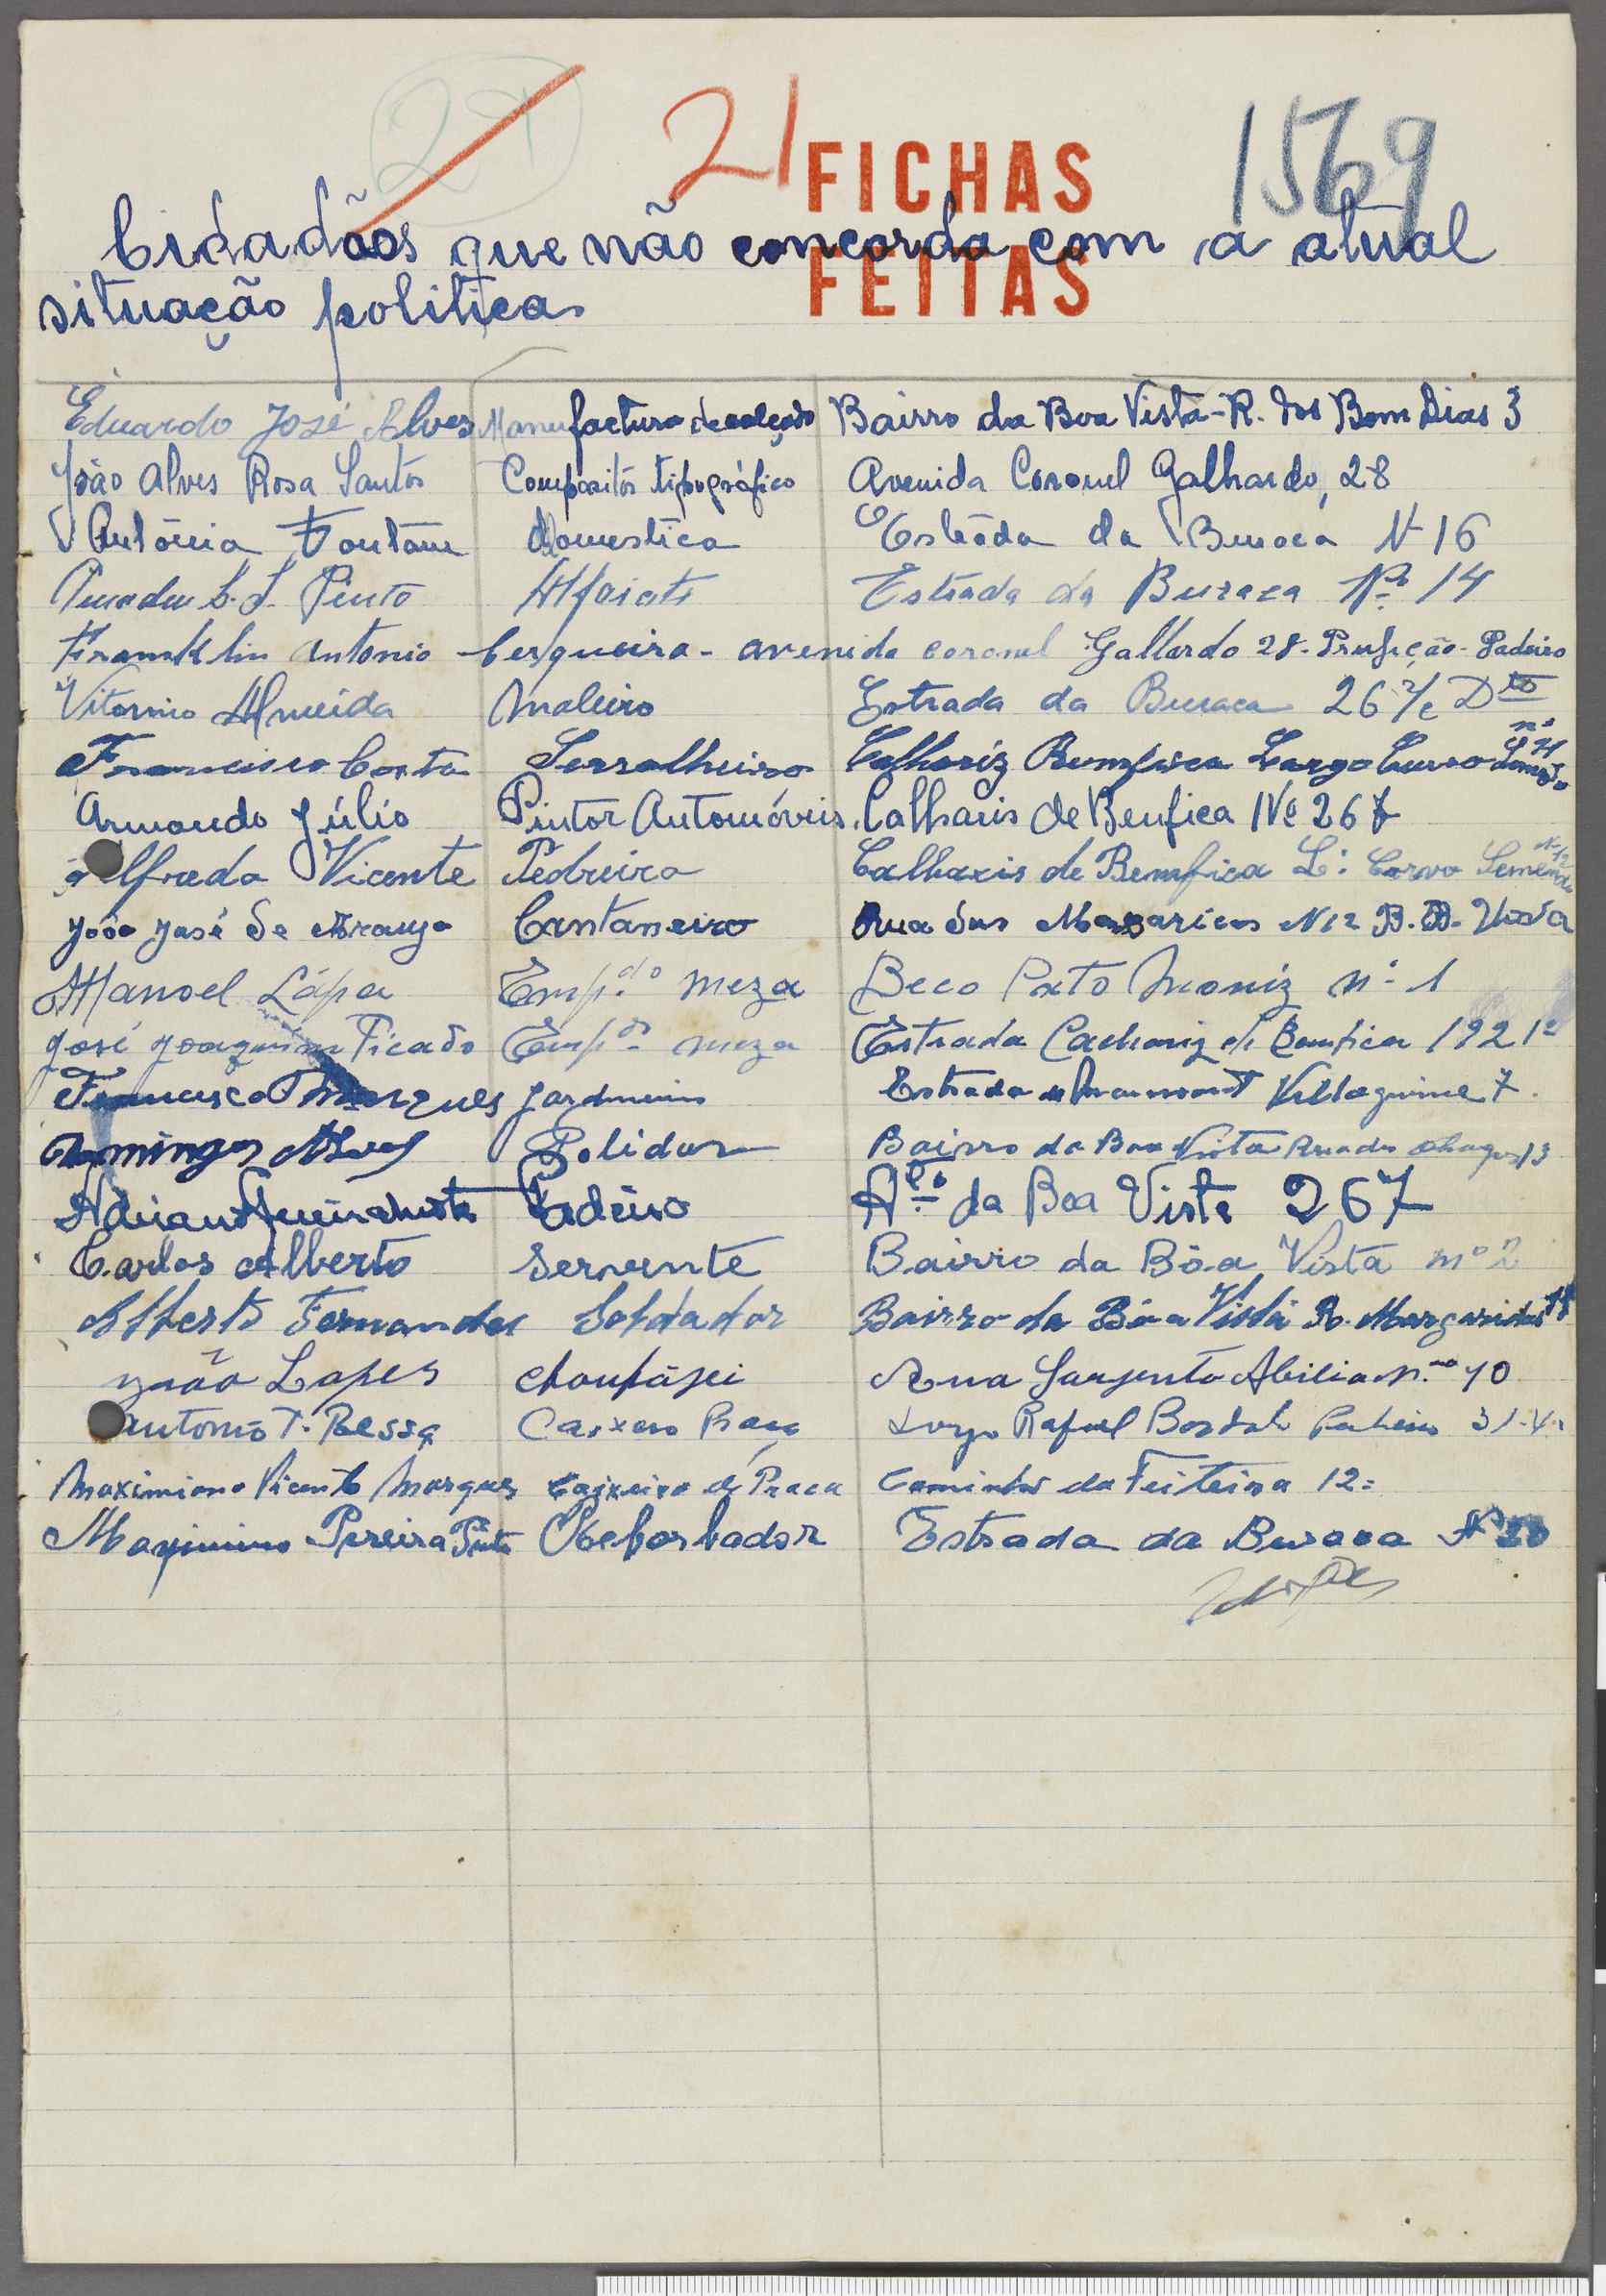 21 FICHAS 1569
Cidadãos que não concorda com a atual
FEITAS
situação politica
Eduardo José Alves Manufactura de calçado Bairro da Boa Vista - R. dos Bom Dias 3
João Alves Rosa Santos Compositôr tipográfico Avenida Coronel Galhardo, 28
Antónia Domestica Estráda da Buraca N 16
C. S. Pinto Alfaiate Estrada da Buraca Nº 14
Franklin Antonio Cerqueira - avenida coronel Gallardo 28 - Padeiro
Vitorino Almeida Maleiro Estrada da Buraca 26 r/c Dto
Francisco Costa Serralheiro Calhariz Bemfica Largo
Armando Júlio Pintor Automóveis Calharis de Benfica Nº 267
Alfredo Vicente Pedreiro Calharis de Bemfica L:
João José de Araujo Cantaneiro Rua dos Masaricos N 12 B. B. Vista
Manoel Lápa Emp.do meza Beco Pato Moniz nº 1
José Joaquim Picado Emp.do meza Estrada de Bemfica 192 1º
Francisco Marques Jardineiro Estrada 7
Domingos Alves Polidor Bairro da Boa Vista Rua 13
Padeiro da Boa Vista 267
Carlos Alberto Servente Bairro da Bôa Vista nº 2
Alberto Fernandes Soldador Bairro da Bôa Vista R. Margaridas
João Lopes Rua Sargento Abilio nº 10
António T. Bessa Caixero Praça Largo Rafael Bordalo Pinheiro
Maximiano Vicente Marques Caixeiro de Praca Caminho da Feiteira 12
Maximino Pereira Pinto Rebarbador Estrada da Buraca Nº 20